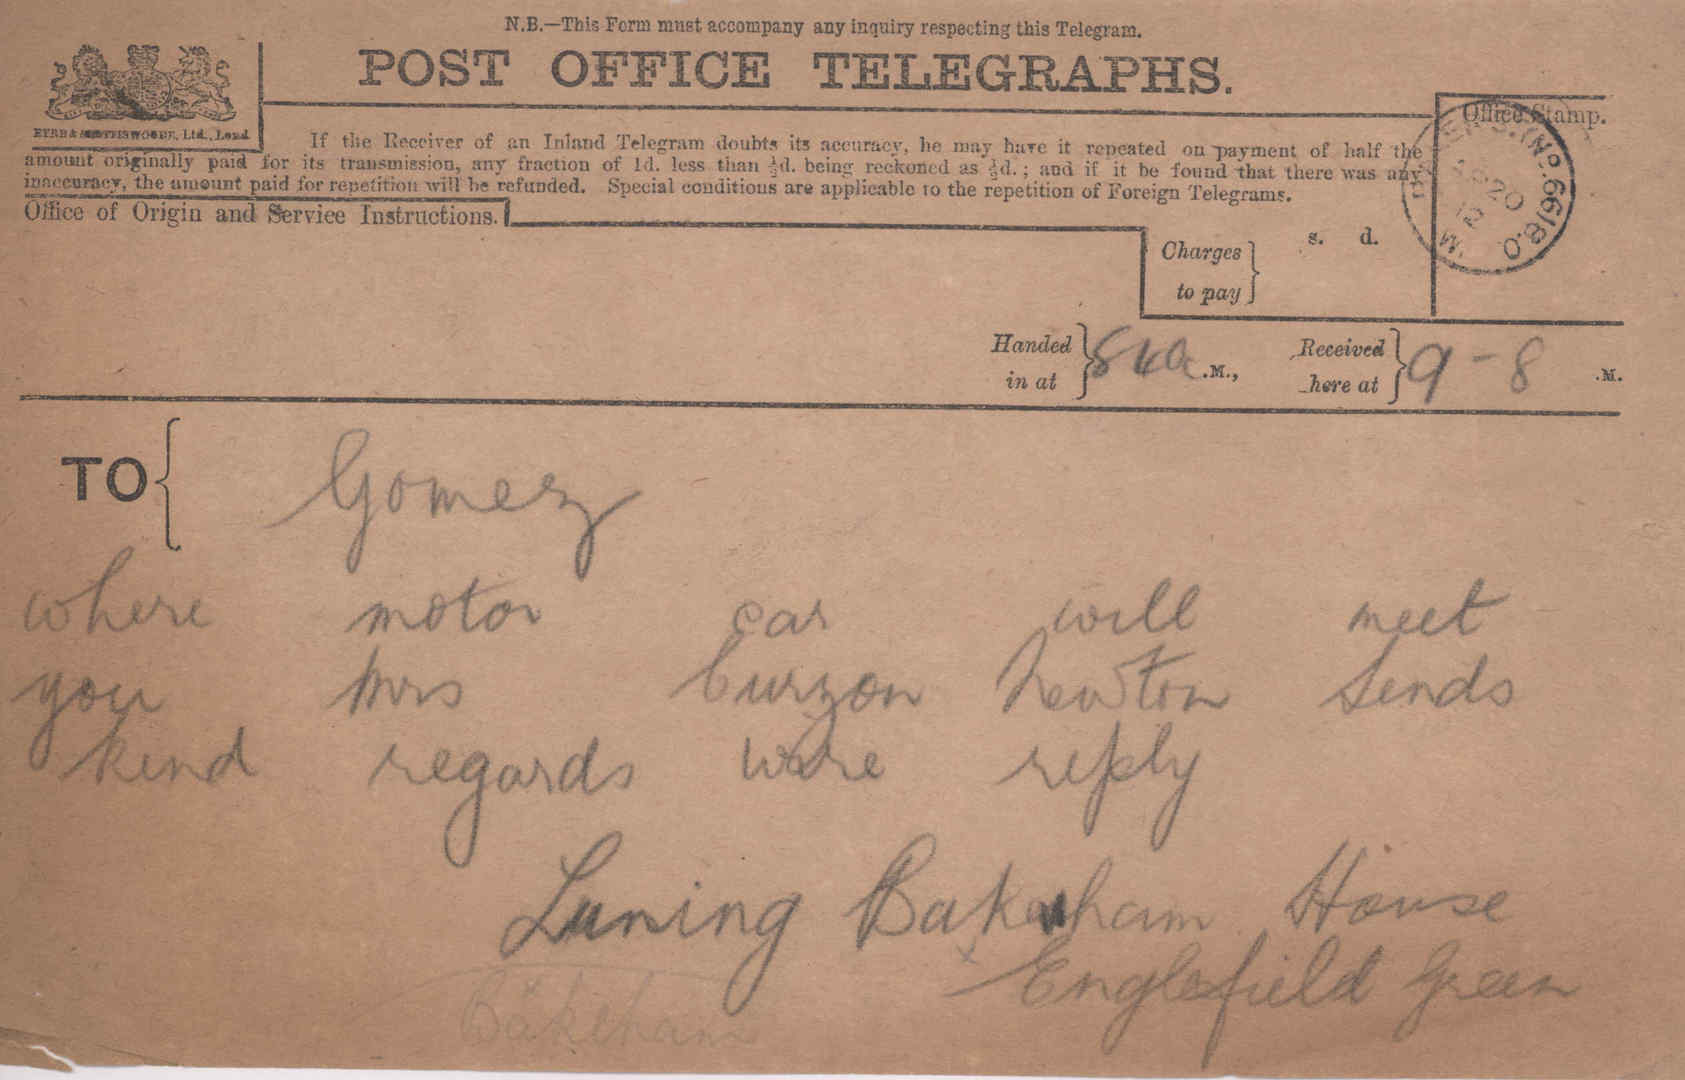 N.B.—This Form must accompany any inquiry respecting this Telegram.
POST OFFICE TELEGRAPHS.
EYRE & SPOTTISWOODE, Ltd., Lond.
Office Stamp.
If the Receiver of an Inland Telegram doubts its accuracy, he may have it repeated on payment of half the
amount originally paid for its transmission, any fraction of 1d. less than ½d. being reckoned as ½d.; and if it be found that there was any
inaccuracy, the amount paid for repetition will be refunded. Special conditions are applicable to the repetition of Foreign Telegrams.
Office of Origin and Service Instructions.
20
15
(No. 66/8.O
Charges
to pay
s. d.
Handed
in at
.M.,
Received
here at
9-8
.M.
TO Gomez
where motor car will meet
you Mrs Curzon Newton Sends
kind regards wire reply
Luning Bakeham House
Englefield Green
Bakeham